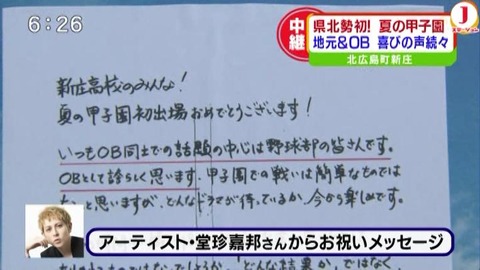 6:26
中継
県北勢初! 夏の甲子園
地元&OB 喜びの声続々
北広島町新庄
J
新庄高校のみんな!
夏の甲子園初出場おめでとうございます!
いつもOB同士での話題の中心は野球部の皆さんです。
OBとして誇らしく思います。甲子園での戦いは簡単なものでは
ないと思いますが、どんなドラマが待っているか、今から楽しみです。
アーティスト・堂珍嘉邦さんからお祝いメッセージ